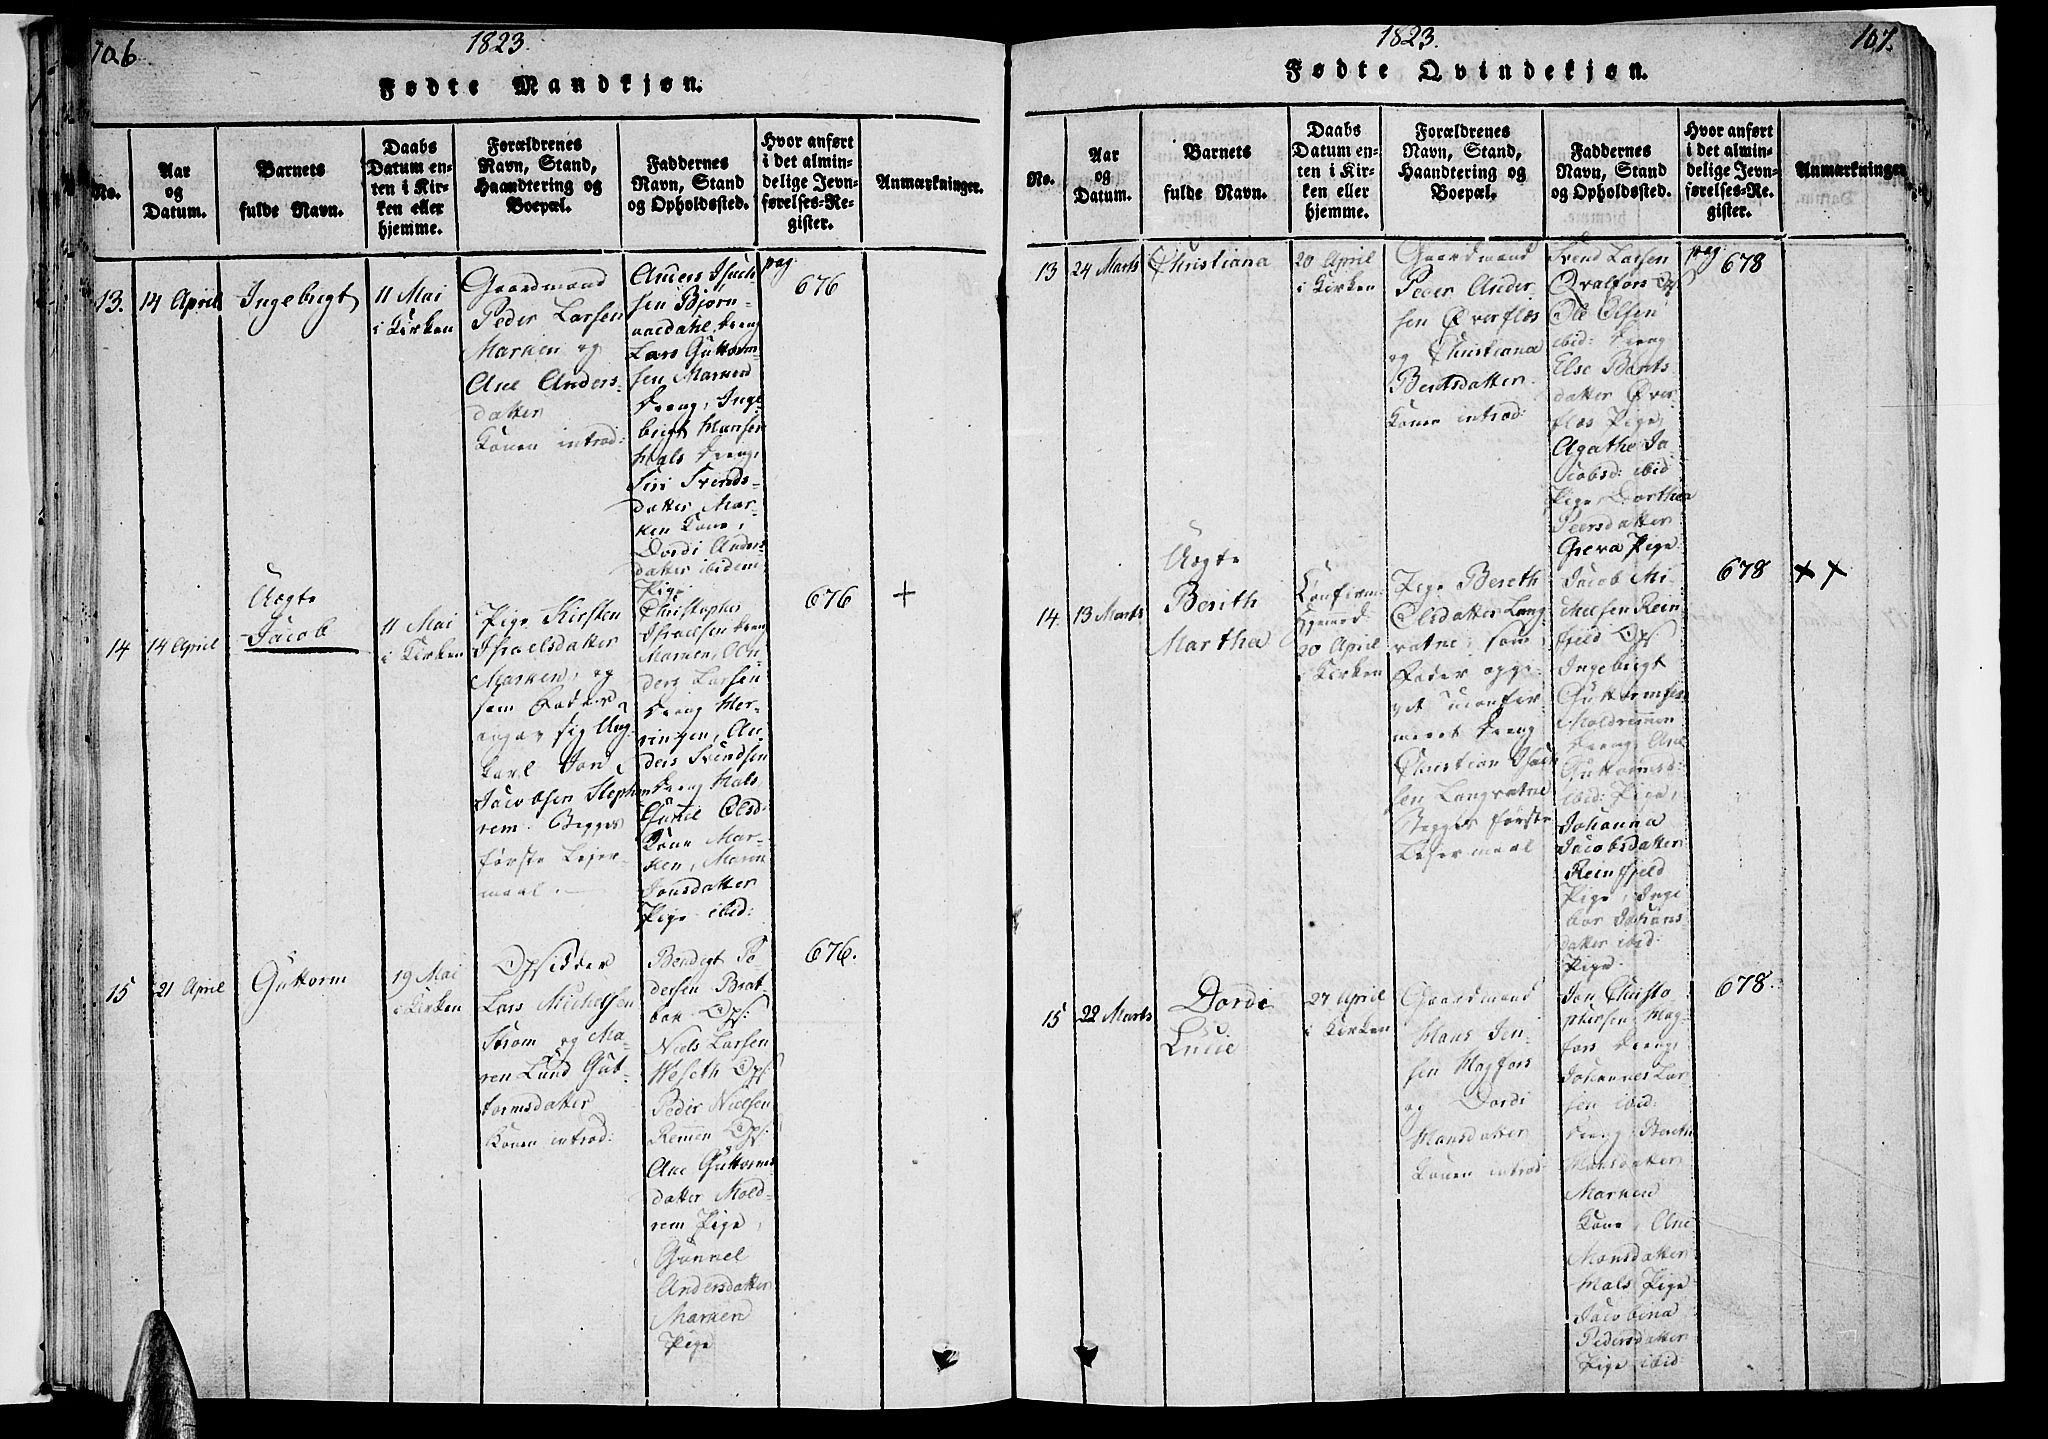 106
1823.
Fødte Mandkjøn.
No.
Aar
og
Datum.
Barnets
fulde Navn.
Daabs
Datum en-
ten i Kir-
ken eller
hjemme.
Forældrenes
Navn, Stand,
Haandtering og
Boepæl.
Faddernes
Navn, Stand
og Opholdssted.
Hvor anført
i det almin-
delige Jevn-
førelses-Re-
gister.
Anmærkninger.
13.
14 April
Ingebrigt
11 Mai
i Kirken
Gaardmand
Peder Larsen
Marken og
Ane Anders-
datter
Konen introd:
Anders Isach-
sen Bjørn-
aaedahl, Dreng
Lars Guttorm-
sen Marken
Dreng, Inge-
brigt Hansen
Hals Dreng,
Siri Svends-
datter Mar-
ken Kone,
Dordi Anders-
datter ibidem
Pige
pag:
676
14
14 April
Uægte
Jacob
11 Mai
i Kirken
Pige Kirsten
Israelsdatter
Marken, og
som Fader
angav sig Ung-
karl Jon
Jacobsen Stephen
rem. Begges
første Leier-
maal.
Christopher
Israelsen Dreng
Marken, An-
ders Larsen
Dreng Her-
ringen, An-
ders Svendsen
Dreng Hals,
Guriel Olsd:
Kone Mar-
ken, Maren
Jonsdatter
Pige ibid:
676
+
15
21 April
Guttorm
19 Mai
i Kirken
Opsidder
Lars Michelsen
Strøm og Ma-
ren Lund Gut-
tormsdatter
Konen introd:
Bendigt Pe-
dersen Brat-
bak Ops:
Niels Larsen
Weseth Ops:
Peder Nielsen
Remmen Ops:
Ane Guttorms
datter Mold-
rem Pige,
Gunnel
Andersdatter
Marken
Pige
676.
107.
1823.
Fødte Qvindekjøn.
No.
Aar
og
Datum.
Barnets
fulde Navn.
Daabs
Datum en-
ten i Kir-
ken eller
hjemme.
Forældrenes
Navn, Stand,
Haandtering og
Boepæl.
Faddernes
Navn, Stand
og Opholdssted.
Hvor anført
i det almin-
delige Jevn-
førelses-Re-
gister.
Anmærkninger
13
24 Marts
Christiana
20 April
i Kirken
Gaardmand
Peder Ander
sen Øverflæs
og Christiana
Bentsdatter
Konen introd:
Svend Larsen
Qvalfors Ops
Ole Olsen
ibid: Dreng
Else Bents
datter Øver
flæs Pige,
Agatha Ja-
cobsd: ibid
Pige, Dorthea
Peersdatter
Greva Pige
pag
678
14.
13 Marts
Uægte
Berith
Martha
Confirm:
hjemmed
20 April
i Kirken
Pige Bereth
Olsdatter Lang
vatne, som
Fader opgi-
vet uconfir
meret Dreng
Christian Isach
sen Langvatne
Begges første
Leiermaal
Jacob Mi-
chelsen Rein
fjeld Ops
Ingebrigt
Guttormsen
Moldremmen
Dreng, Ane
Guttormsd:
ibid: Pige,
Johanna
Jacobsdatter
Reinfjeld
Pige, Inge
bor Johans
datter ibid:
Pige
678
+ +
15
22 Marts
Dordi
Lucie
27 April
i Kirken
Gaardmand
Hans Jen-
sen Hagfors
og Dordi
Hansdatter
Konen introd:
Jon Christo-
phersen Hag-
fors Dreng,
Johannes Lar
sen ibid:
Dreng, Bereth
Hansdatter
Marken
Kone, Ane
Hansdatter
Hals Pige
Jacobina
Pedersdatter
Pige ibid:
678.